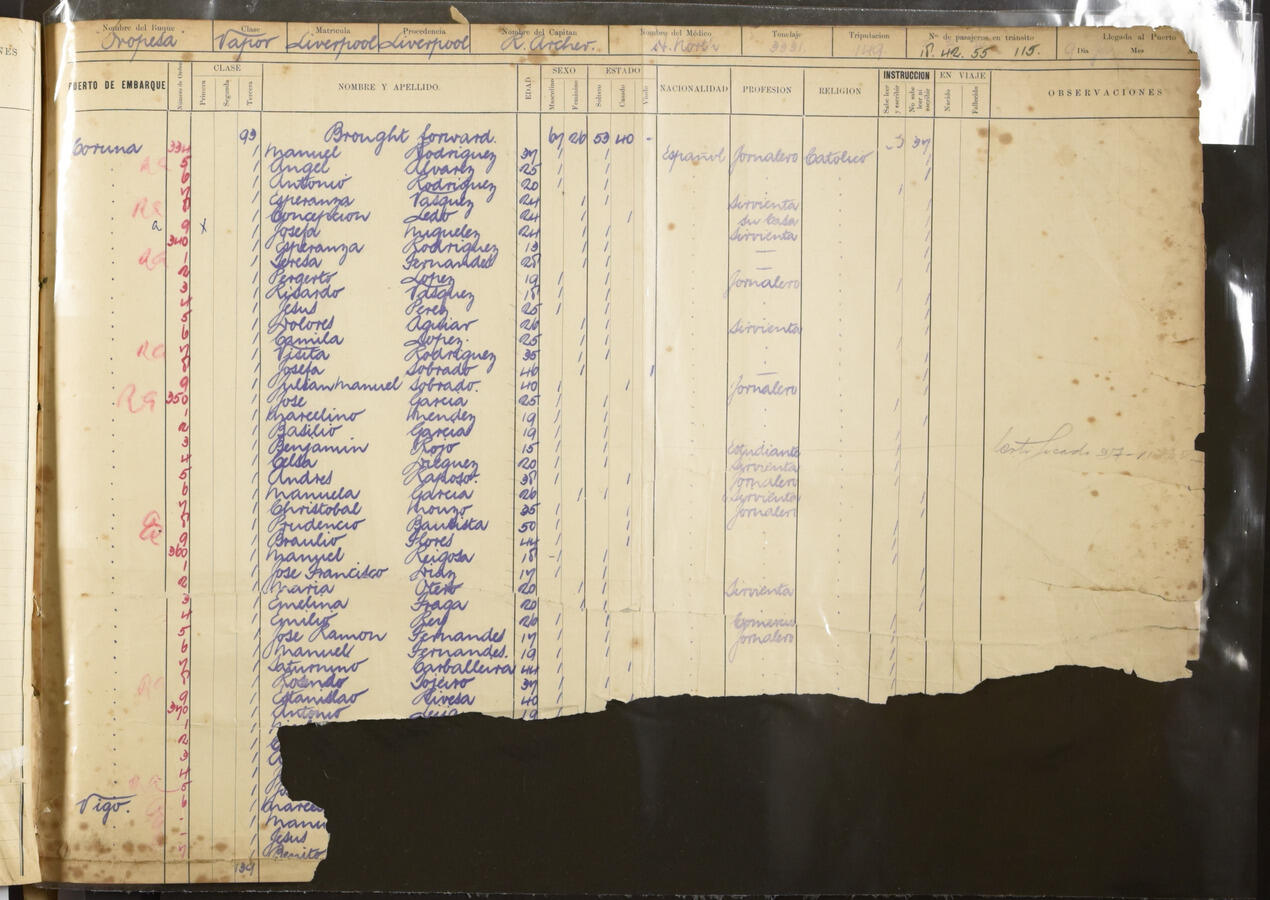 Nombre del Buque Clase Matricula Procedencia Nombre del Capitan Nombre del Médico Tonelaje Tripulacion Nos de pasajeros en tránsito Llegada al Puerto
Oropesa Vapor Liverpool Liverpool H. Archer. 3331 149 18. 42. 55 115. Dia Mes
PUERTO DE EMBARQUE Número de Orden CLASE Primera Segunda Tercera NOMBRE Y APELLIDO. EDAD SEXO Masculino Femenino ESTADO Soltero Casado Viudo NACIONALIDAD PROFESION RELIGION INSTRUCCION Sabe leer y escribir No sabe leer ni escribir EN VIAJE Nacido Fallecido OBSERVACIONES
93 Brought forward. 67 26 53 40 -
Coruna 334 Manuel Rodriguez 37 Español Jornalero Católico
5 Angel Alvarez 25
6 Antonio Rodriguez 20
7 Esperanza Vasquez 24 Sirvienta
8 Concepcion Ledo 24 su casa
9 Josefa Miguelez 24 Sirvienta
340 Esperanza Rodriguez 13 —
1 Teresa Fernandes 28 —
2 Pergerto Lopez 19 Jornalero
3 Risardo Vasquez 18
4 Jesus Perez 25
5 Dolores Aguiar 26 Sirvienta
6 Camila Lopez. 25
7 Visita Rodriguez 35
8 Josefa Sobrado 46 —
9 Julian Manuel Sobrado. 40 Jornalero
350 Jose Garcia 25
1 Marcelino Mendez 19
2 Basilio Garcia 19
3 Benjamin Rojo 15 Estudiante
4 Celsa Dieguez 20 Sirvienta
5 Andres Raposo. 38 Jornalero
6 Manuela Garcia 26 Sirvienta
7 Christobal Mouzo 35 Jornalero
8 Prudencio Bautista 50
9 Braulio Flores 44
360 Manuel Reigosa 18
1 Jose Francisco Diaz 17
2 Maria Otero 20 Sirvienta
3 Emelina Fraga 20
4 Emilio Rey 26 Comercio
5 Jose Ramon Fernandes 17 Jornalero
6 Manuel Fernandes. 19
7 Saturnino Carballeira 44
8 Rosendo Tojeiro 37
9 Estanislao Rivesa 40
370 Antonio 19
1
2
3
4
5
Vigo. 6
Manu
Jesus
Benito
139